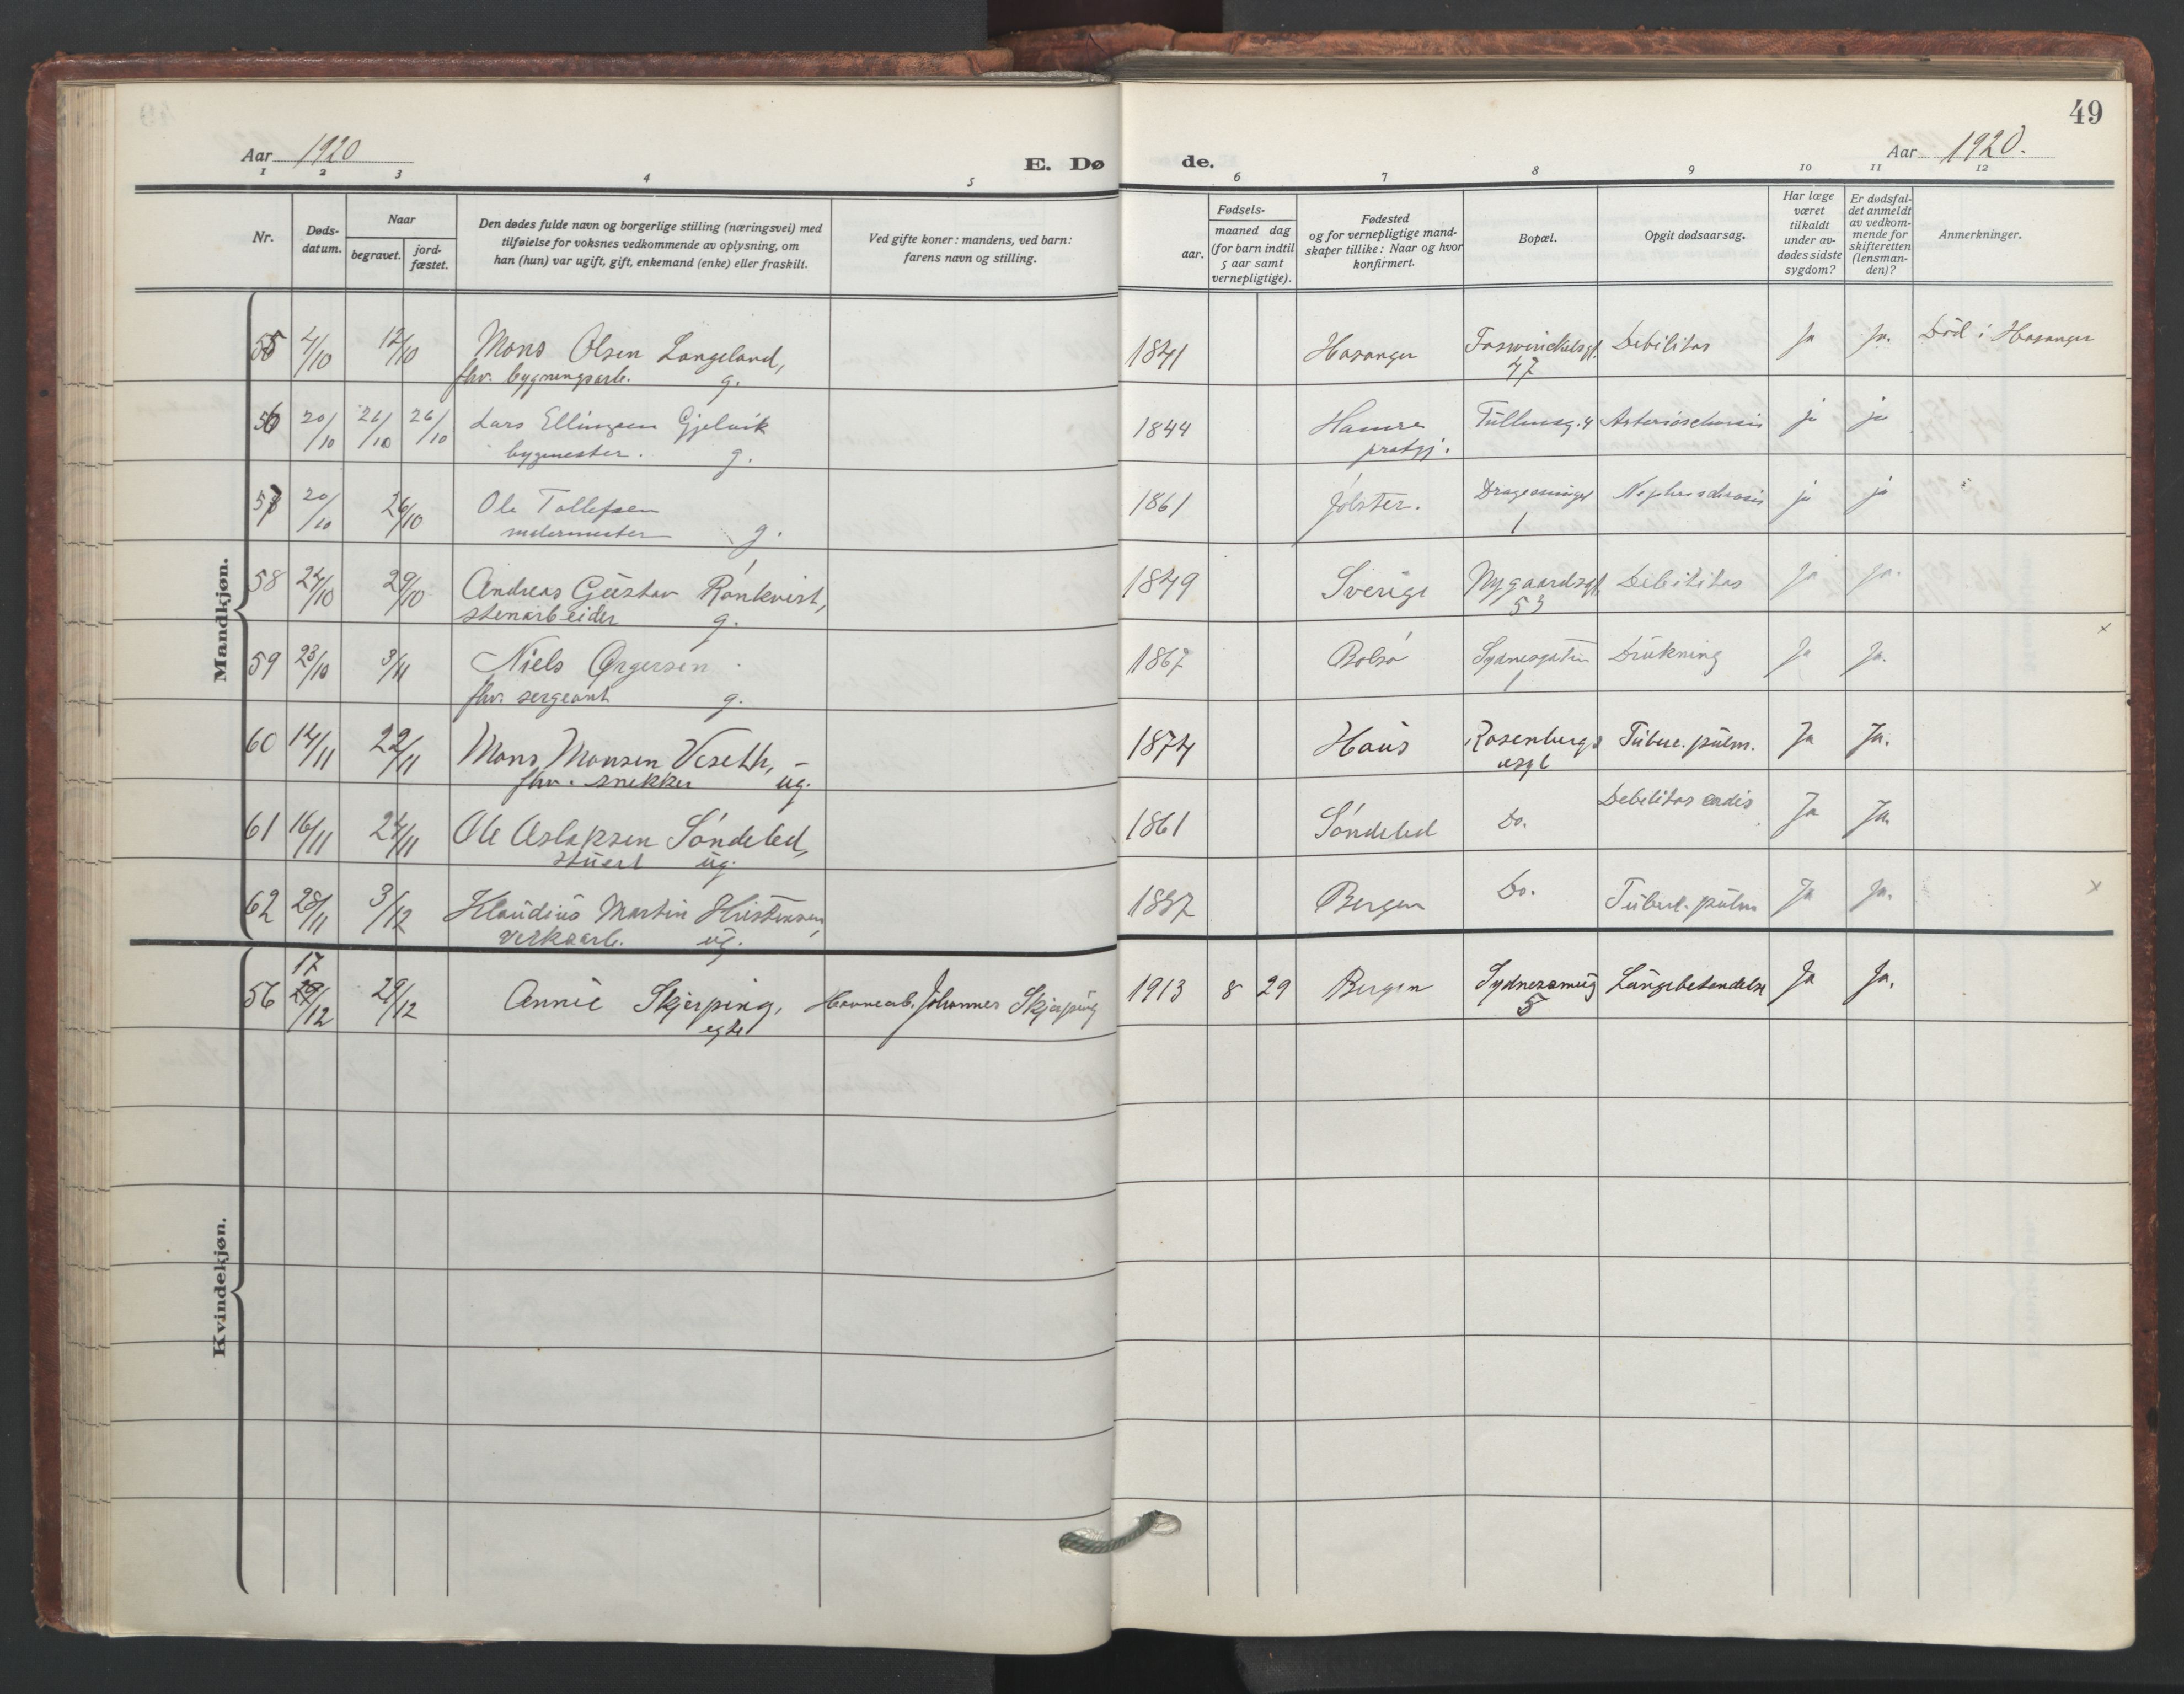 49
Aar 1920
E. Dø de.
Aar 1920.
1 2 3 4 5 6 7 8 9 10 11 12
Nr.
Døds-
datum.
Naar
begravet.
jord-
fæstet.
Den dødes fulde navn og borgerlige stilling (næringsvei) med
tilføielse for voksnes vedkommende av oplysning, om
han (hun) var ugift, gift, enkemand (enke) eller fraskilt.
Ved gifte koner: mandens, ved barn:
farens navn og stilling.
Fødsels-
aar.
maaned dag
(for barn indtil
5 aar samt
vernepligtige).
Fødested
og for vernepligtige mand-
skaper tillike: Naar og hvor
konfirmert.
Bopæl.
Opgit dødsaarsag.
Har læge
været
tilkaldt
under av-
dødes sidste
sygdom?
Er dødsfal-
det anmeldt
av vedkom-
mende for
skifteretten
(lensman-
den)?
Anmerkninger.
Mandkjøn.
55 4/10 12/10 Mons Olsen Langeland, 1841 Hosanger Foswinckelsgt. Debilitas Ja Ja. Død i Hosanger
fhv. bygningsarb. g. 47
56 20/10 26/10 26/10 Lars Ellingsen Gjelvik 1844 Hamre Tullinsg. 4 ja ja
bygmester. g. prstgj.
57 20/10 26/10 Ole Tollefsen 1861 Jølster. ja ja
malermester g. 1
58 24/10 29/10 Andreas Gustav Rønkvist, 1849 Sverige Nygaardsgt. Debilitas Ja Ja.
stenarbeider g. 53
59 23/10 3/11 Niels Ørgersen 1867 Bolsø Sydnesgaten Drukning Ja Ja. x
fhv. sergeant g. 1
60 14/11 22/11 Mons Monsen Veseth, 1874 Haus Rosenbergs Tuberc. pulm. Ja Ja.
fhv. snekker ug. asyl
61 16/11 24/11 Ole Aslaksen Søndeled, 1861 Søndeled Do. Debilitas cordis Ja Ja.
stuert ug.
62 28/11 3/12 Klaudius Martin Kristensen, Bergen Do. Tuberc. pulm Ja Ja. x
verksarb. ug.
Kvindekjøn.
17
56 29/12 29/12 Annie Skjerping, Havnearb. Johannes Skjerping 1913 8 29 Bergen Sydnessmug Lungebetendelse Ja Ja.
egte 5